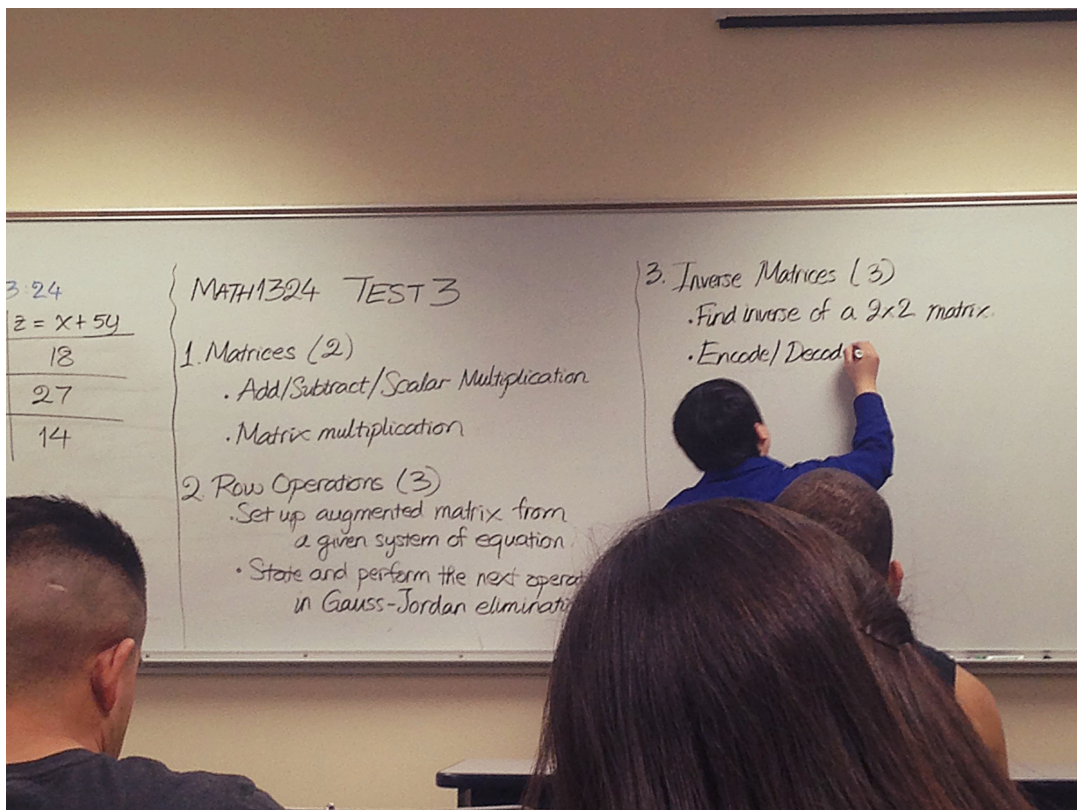 3:24
z = x + 5y
18
27
14
MATH1324 TEST 3
1. Matrices (2)
· Add/Subtract/Scalar Multiplication
· Matrix multiplication
2. Row Operations (3)
· Set up augmented matrix from
a given system of equation
· State and perform the next operat
in Gauss-Jordan eliminati
3. Inverse Matrices (3)
· Find inverse of a 2x2 matrix.
· Encode/Decod